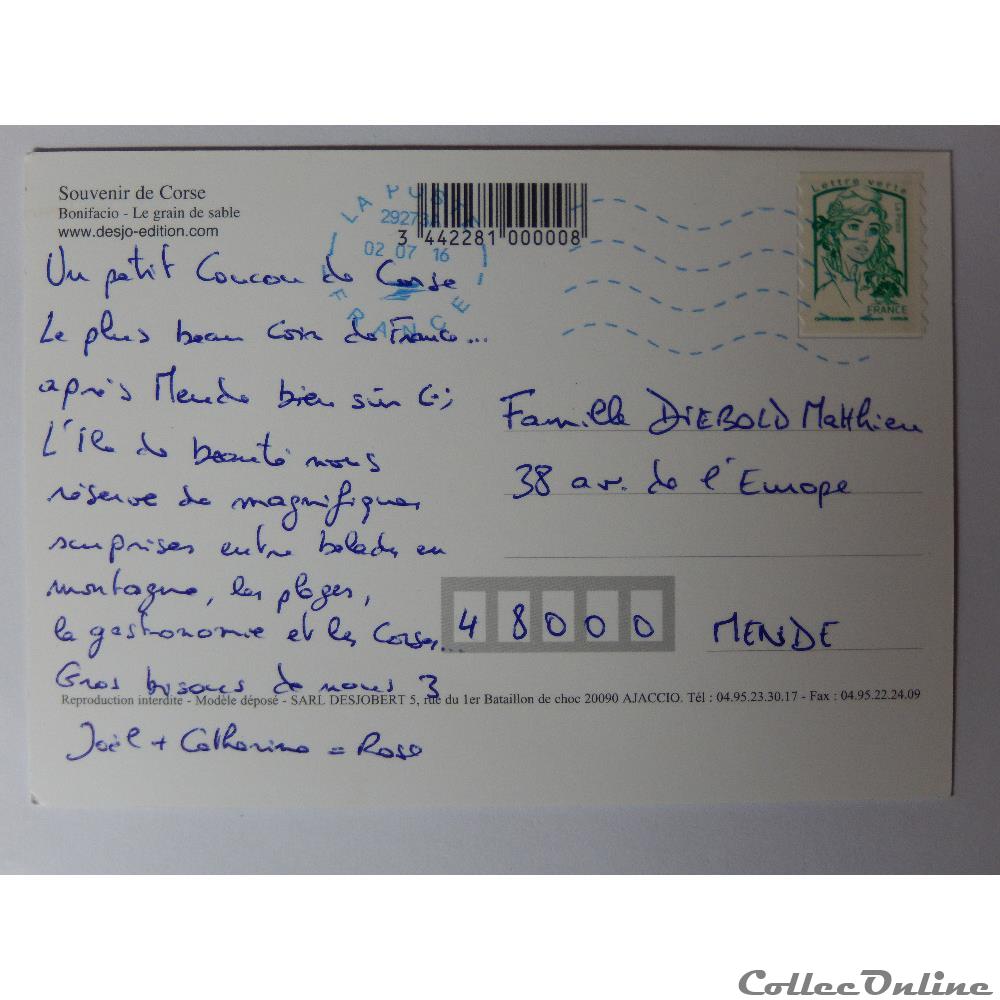 Souvenir de Corse
Bonifacio - Le grain de sable
www.desjo-edition.com
LA POSTE
29273A
02 07 16
FRANCE
3 442281 000008
Lettre verte
FRANCE
Un petit Coucou de Corse
Le plus beau coin de France...
après Mende bien sûr (;
L'Ile de beauté nous
réserve de magnifiques
surprises entre balades en
montagne, les plages,
la gastronomie et les Corses...
Gros bisous de nous 3
Joël + Catherine = Rose
Famille DIEBOLD Matthieu
38 av. de l'Europe
48000 MENDE
Reproduction interdite - Modèle déposé - SARL DESJOBERT 5, rue du 1er Bataillon de choc 20090 AJACCIO. Tél : 04.95.23.30.17 - Fax : 04.95.22.24.09
CollecOnline